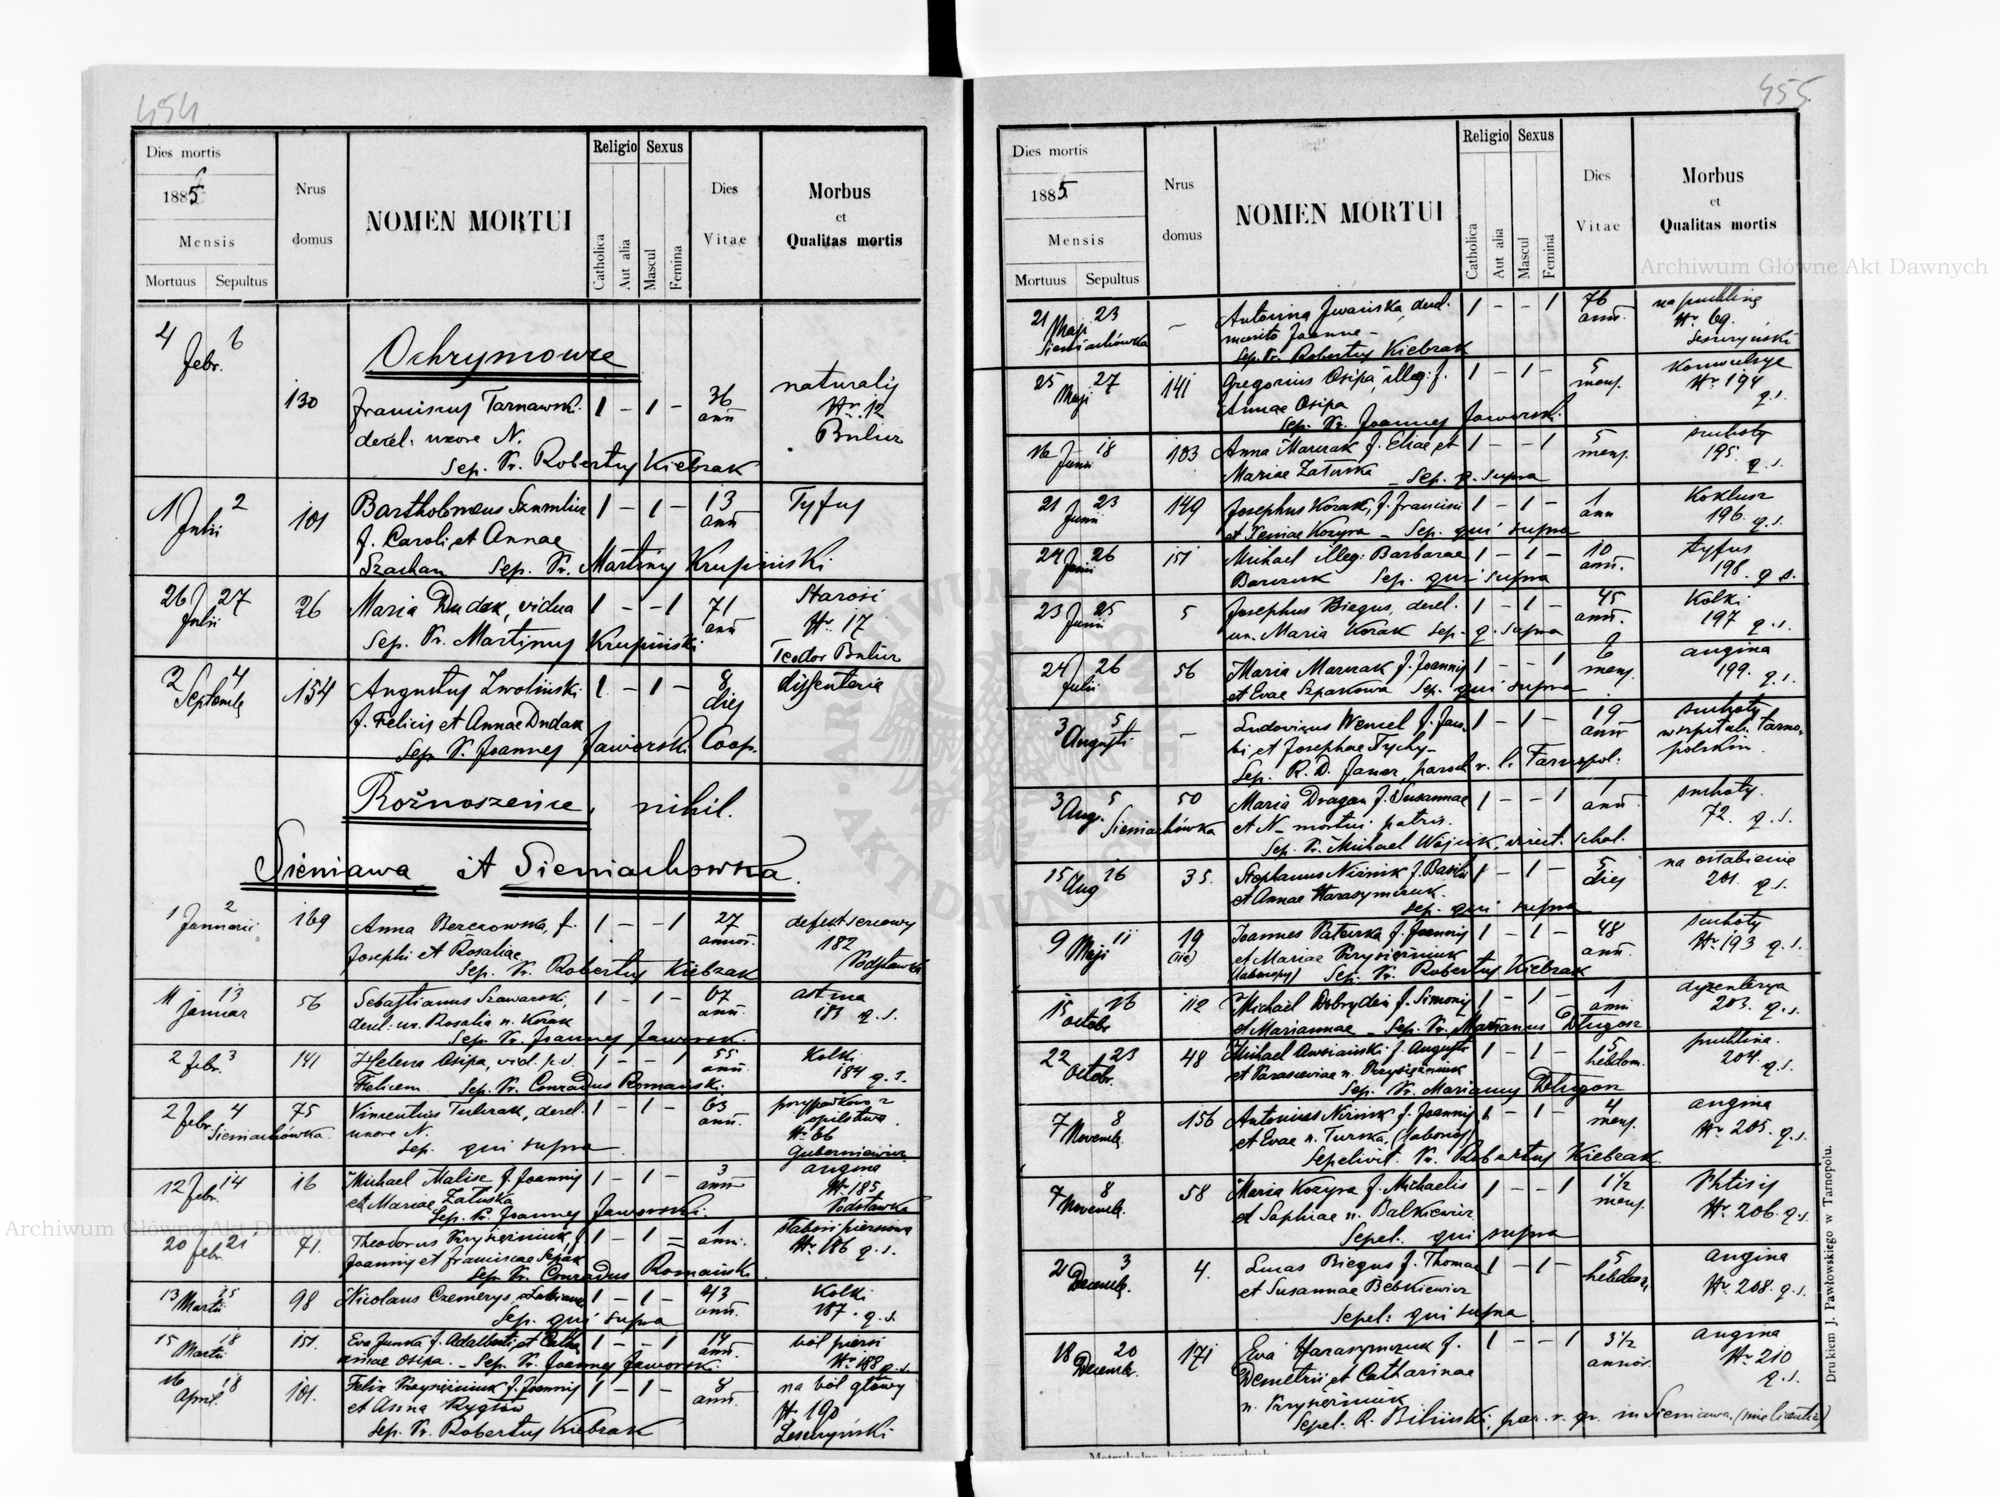 454
Dies mortis
1885
Mensis
Mortuus Sepultus
Nrus
domus
NOMEN MORTUI
Religio Sexus
Catholica
Aut alia
Mascul
Femina
Dies
Vitae
Morbus
et
Qualitas mortis
4 Febr. 6
Ochrymowce
130 Franciscus Tarnawski 1 – 1 – 36 annů naturalis
derel. uxore N. Nr. 12
Sep. Vr. Robertus Kiebzak
1 Julii 2 101 Bartholomeus 1 – 1 – 13 annů Tyfus
f. Caroli et Annae
Szachan Sep. Vr. Martinus Krupinski
26 Julii 27 26 Maria Dudak, vidua 1 – – 1 71 annů Starość
Sep. Vr. Martinus Krupiński Nr. 17
Teodor
2 Septemb 4 154 Augustus Zwoliński 1 – 1 – 8 dies dissenteria
f. Felicis et Annae Dudak
Sep. V. Joannes Jaworski Coop.
Rożnoszeńce, nihil.
Sieniawa et Sieniachowka.
1 Januarii 2 169 Anna f. 1 – – 1 27 annor. defekt sercowy
Josephi et Rosaliae 182
Sep. Vr. Robertus Kiebzak Podstawka
11 Januar 13 56 Sebastianus Szawarski, 1 – 1 – 67 annů. astma
derel. ux. Rosalia n. Korak 183 q. s.
Sep. Vr. Joannes Jaworski.
2 Febr. 3 141 Helena Osipa, vid. p. d. 1 – – 1 55 annů. Kolki
Felicem Sep. Vr. Conradus Romański. 184 q. s.
2 Febr. 4 Sieniachówka 75 Vincentius derel. 1 – 1 – 63 annů.
uxore N. Nr. 66
Sep. qui supra Guberniewicz
12 Febr. 14 16 Michael Malisz f. Joannis 1 – 1 – 3 annor angina
et Mariae Załuska Nr. 185
Sep. Vr. Joannes Jaworski. Podstawka
20 Febr. 21 71. Theodorus f. 1 – 1 = 1 anni.
Joannis et Franciscae Nr. 186 q. s.
Sep. Vr. Conradus Romański
13 Martii 15 98 Nicolaus Czemerys, 1 – 1 – 43 annů. Kolki
Sep. qui supra 187. q. s.
15 Martii 18 151. Eva Junka f. Adalberti et Catha 1 – – 1 14 annů. ból piersi
rinae Osipa. – Sep. Vr. Joannes Jaworski. Nr. 188 q. s.
16 April. 18 101. Felix f. Joannis 1 – 1 – 8 annů. na ból głowy
et Anna Nr. 190
Sep. Vr. Robertus Kiebzak Leszczyński
455
Dies mortis
1885
Mensis
Mortuus Sepultus
Nrus
domus
NOMEN MORTUI
Religio Sexus
Catholica
Aut alia
Mascul
Femina
Dies
Vitae
Morbus
et
Qualitas mortis
21 Maji 23 – Antonina Iwańska, derel. 1 – – 1 76 annů. na puchlinę
Sieniachówka marito Joanne – Nr. 69.
Sep. Vr. Robertus Kiebzak Leszczyński
25 Maji 27 141 Gregorius Osipa, illeg. f. 1 – 1 – 5 mens. Konwulsye
Annae Osipa Nr. 194
Sep. Vr. Joannes Jaworski. q. s.
16 Junii 18 103 Anna Marczak f. Eliae et 1 – – 1 5 mens. suchoty
Mariae Załuska – Sep. q. supra 195. q. s.
21 Junii 23 149 Josephus Korak, f. Francisci 1 – 1 – 1 ann Koklusz
et Xeniae Kozyra – Sep. qui supra 196. q. s.
24 Junii 26 151 Michael illeg. Barbarae 1 – 1 – 10 annů. tyfus
Sep. qui supra 198. q. s.
23 Junii 25 5 Josephus Biegus, derel. 1 – 1 – 45 annů. Kolki
ux. Maria Korak Sep. q. supra 197 q. s.
24 Julii 26 56 Maria Marczak f. Joannis 1 – – 1 6 mens. angina
et Evae Szpakowa Sep. qui supra 199. q. s.
3 Augusti 5 – Ludovicus Wencel f. Jaco 1 – 1 – 19 annů suchoty
bi et Josephae Tychy – w szpitalu tarno
Sep. R. D. paroch r. l. Tarnopol. polskim
3 Aug. 5 Sieniachówka 50 Maria Dragan f. Susannae 1 – – 1 1 anni suchoty.
et N – mortui patris. 72. q. s.
Sep. Vr. Michael Wójcik, direct. schol.
15 Aug 16 35. Stephanus f. Basilii 1 – 1 – 5 dies na osłabienie
et Annae Harasymczuk. 201. q. s.
Sep. qui supra
9 Maji 11 19 (sic) Joannes f. Joannis 1 – 1 – 48 annů. suchoty
et Mariae Nr. 193 q. s.
Sep. Vr. Robertus Kiebzak
15 Octobr 16 112 Michael f. Simonis 1 – 1 – 1 anni dyzenterya
et Mariannae – Sep. Vr. Marianus Długosz 203. q. s.
22 Octobr. 23 48 Michael f. Augusti 1 – 1 – 5 hebdom. puchlina.
et Parasceviae n. 204. q. s.
Sep. Vr. Marianus Długosz
7 Novemb. 8 156 Antonius f. Joannis 1 – 1 – 4 mens. angina
et Evae n. Turska, Nr. 205. q. s.
Sepelivit. Vr. Robertus Kiebzak.
7 Novemb. 8 58 Maria Kozyra f. Michaelis 1 – – 1 1 1/2 mens. Phtisis
et Sophiae n. Balkiewicz Nr. 206. q. s.
Sepel. qui supra
2 Decemb. 3 4. Lucas Biegus f. Thomae 1 – 1 – 5 hebdom. angina
et Susannae Bebkiewicz Nr. 208. q. s.
Sepel: qui supra
18 Decemb. 20 171 Eva Harasymczuk f. 1 – – 1 3 1/2 annor. angina
Demetrii et Catharinae Nr. 210
n. q. s.
Sepel. R. Biliński, par. r. gr. in Sieniawa.
Drukiem J. Pawłowskiego w Tarnopolu.
Archiwum Główne Akt Dawnych
Archiwum Główne Akt Dawnych
ARCHIWUM GŁÓWNE AKT DAWNYCH